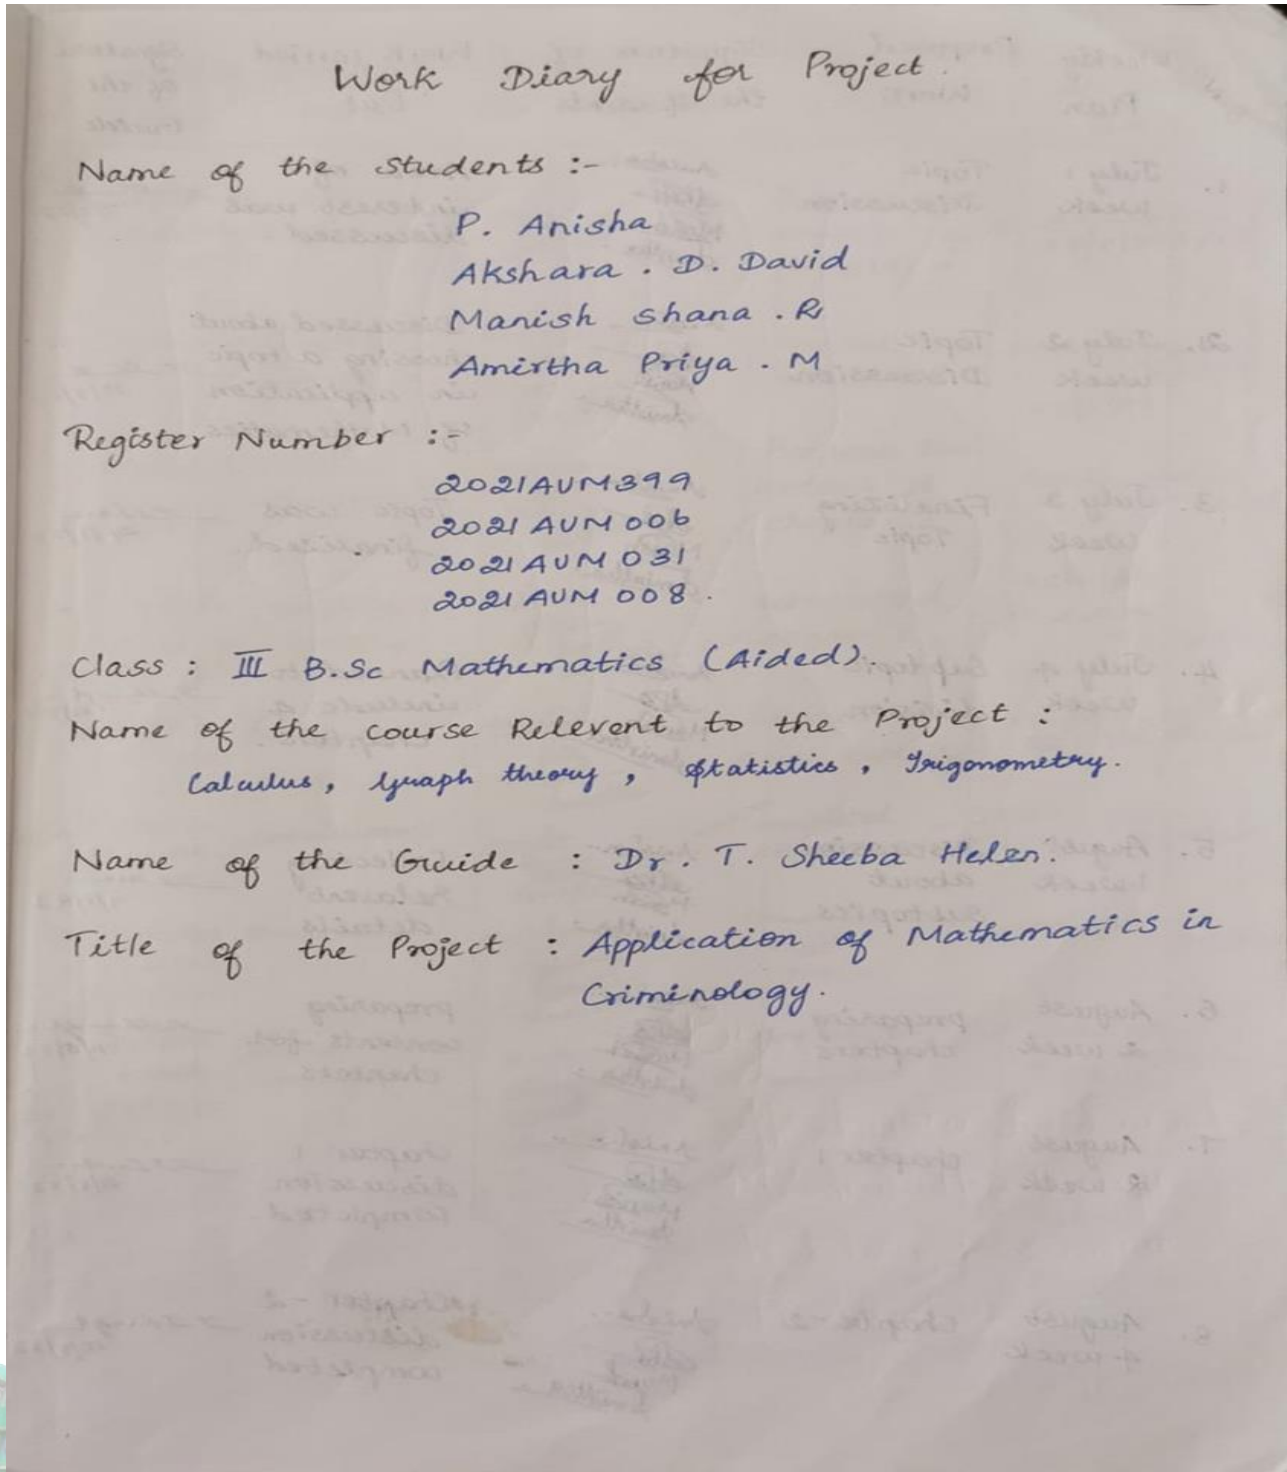 Work Diary for Project.
Name of the Students :-
P. Anisha
Akshara . D. David
Manish Shana . R
Amirtha Priya . M
Register Number :-
2021AUM399
2021 AUM 006
2021 AUM 031
2021 AUM 008.
Class : III B.Sc Mathematics (Aided).
Name of the course Relevent to the Project :
Calculus, Graph theory, Statistics, Trigonometry.
Name of the Guide : Dr. T. Sheeba Helen.
Title of the Project : Application of Mathematics in
Criminology.